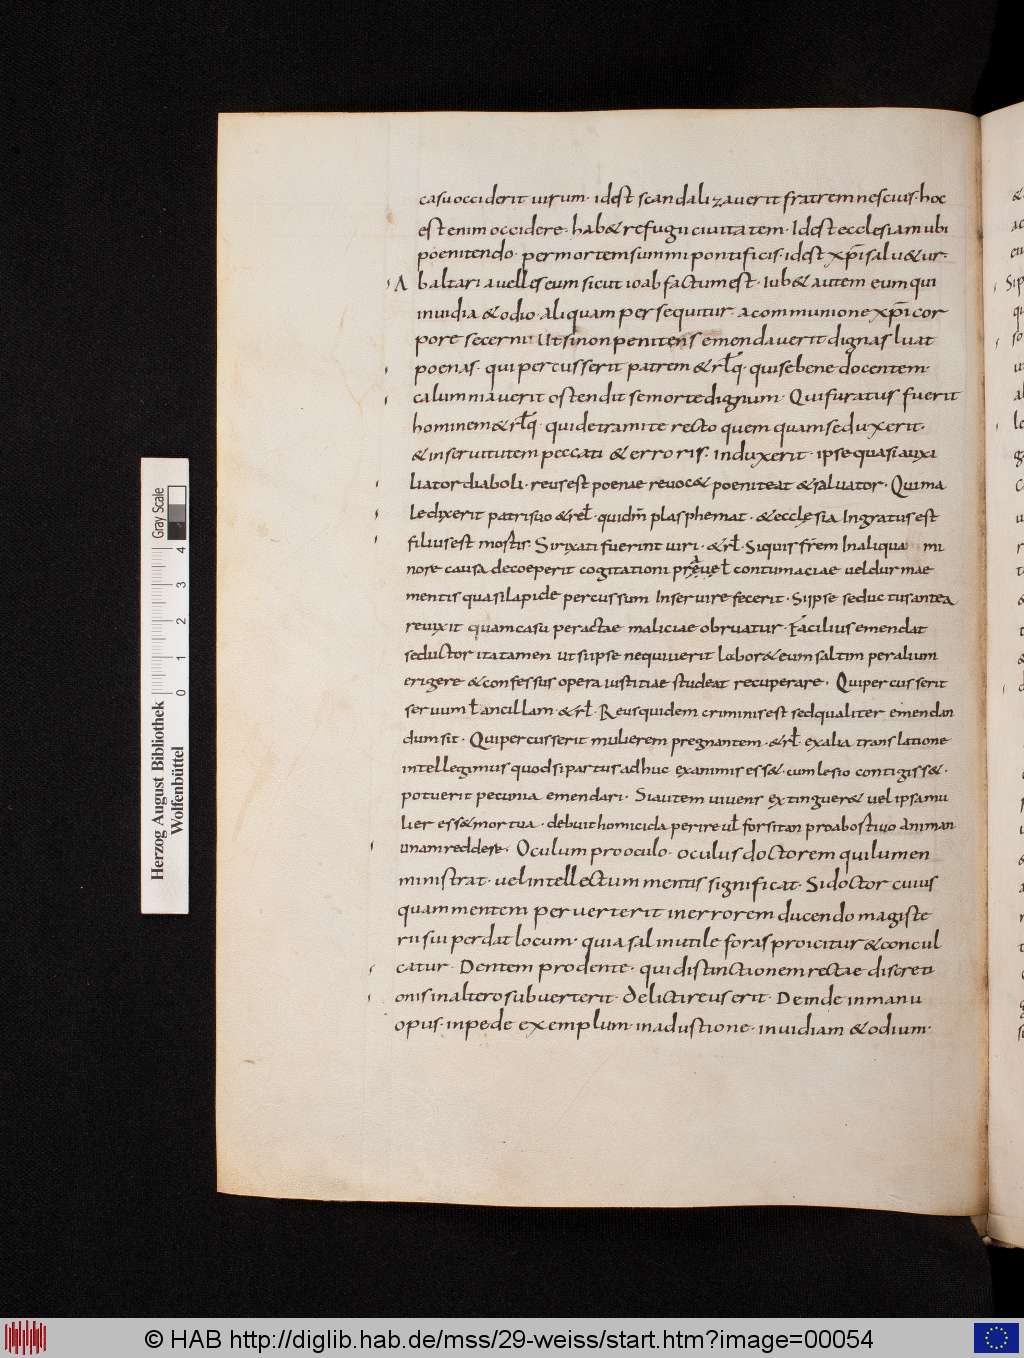 casu occiderit uirum· idest scandalizauerit fratrem nescius· hoc
est enim occidere· hab& refugii ciuitatem· Idest ecclesiam ubi
poenitendo· per mortem summi pontificis· idest xp̄i salu&ur·
Ab altari auelles eum sicut ioab factum est· Iub& autem eum qui
inuidia & odio· aliquam persequitur· a communione xp̄i cor
pore secerni· Ut si non penitens emendauerit dignas luat
poenas· qui percusserit patrem & rl̄q· qui se bene docentem·
calumniauerit ostendit se morte dignum· Qui furatus fuerit
hominem & rl̄q· qui de tramite recto quem quam seduxerit·
& in seruitutem peccati & erroris· induxerit· ipse quasi auxi
liator diaboli· reus est poenae reuoc& poeniteat & saluator· Qui ma
ledixerit patri suo & rel̄· qui dn̄m plasphemat· & ecclesia Ingratus est
filius est mostis· Si rixati fuerint uiri· & rl̄· Si quis fr̄em In aliqua mi
nore causa decoeperit cogitationi contumaciae uel dur mae
mentis quasi lapide percussum Inseruire fecerit· Si ipse seductus antea
reuixit quam casu peractae maliciae obruatur· Facilius emendat
seductor ita tamen ut si ipse nequiuerit labor& eum saltim per alium
erigere & confessus opera iustitiae studeat recuperare· Qui percusserit
seruum l̄ ancillam· & rl̄· Reus quidem criminis est sed qualiter emendan
dum sit· Qui percusserit mulierem pregnantem· & rl̄· ex alia translatione
intellegimus quod si partus adhuc exanimis ess&· cum lesio contigiss&·
potuerit pecunia emendari· Si autem uiuens extinguer& uel ipsa mu
lier ess& mortua· debuit homicida perire ul̄ forsitan pro abostiuo animan
unam reddere· Oculum pro oculo· oculus doctorem qui lumen
ministrat· uel intellectum mentis significat· Si doctor cuius
quam mentem peruerterit in errorem ducendo magiste
rii sui perdat locum· quia sal inutile foras proicitur & concul
catur· Dentem pro dente· qui distinctionem rectae discreti
onis in altero subuerterit· delicti reus erit· Deinde in manu
opus· in pede exemplum· in adustione· inuidiam & odium·
Herzog August Bibliothek
Wolfenbüttel
0 1 2 3 4
Gray Scale
© HAB http://diglib.hab.de/mss/29-weiss/start.htm?image=00054